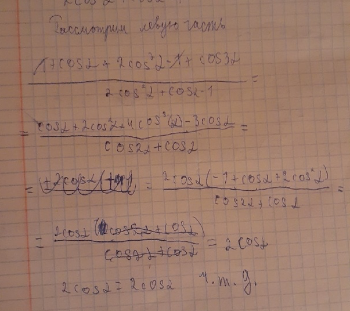 Рассмотрим левую часть
1+cosα + 2cos²α - 1 + cos3α
2cos²α + cosα - 1 =
= cosα + 2cos²α + 4cos³(α) - 3cosα =
cos2α + cosα
= = 2cosα(-1 + cosα + 2cos²α) =
cos2α + cosα
= 2cosα(cos2α + cosα) = 2cosα
cos2α + cosα
2cosα = 2cosα ч.т.д.